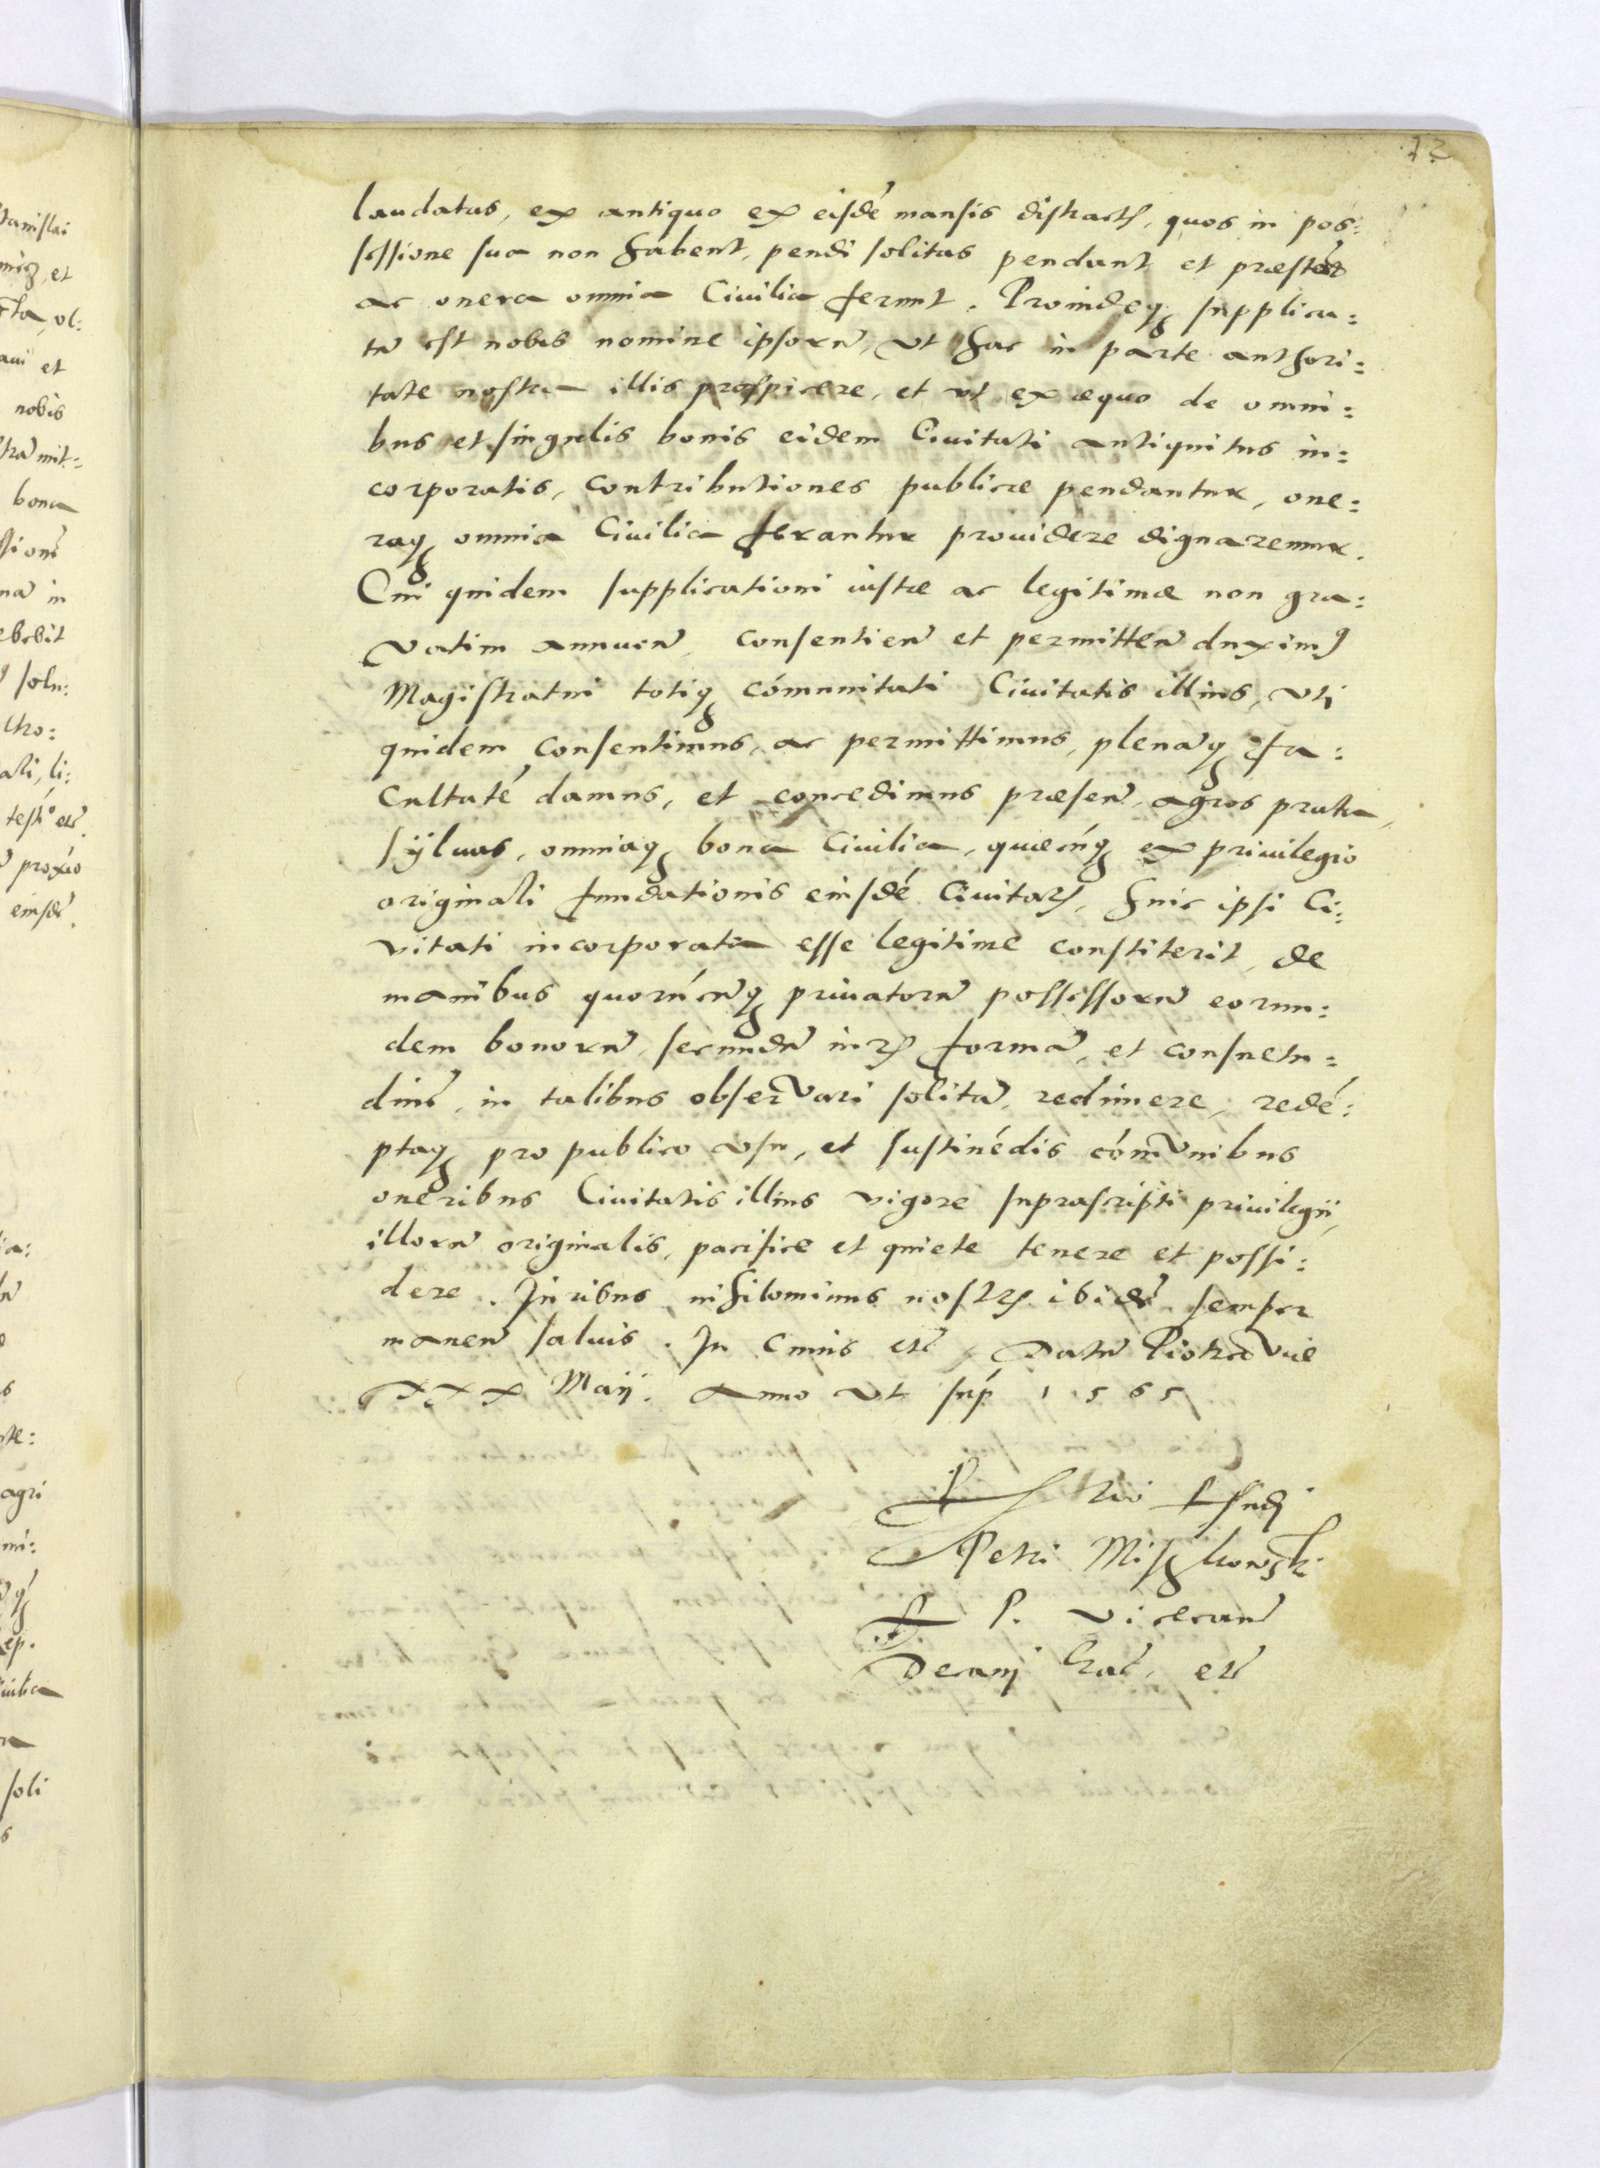 72
laudatas, ex antiquo ex eisdē mansis distractꝭ, quos in pos:
sessione sua non habent, pendi solitas pendant et præstēt
ac onera omnia Ciuilia ferunt. Proindeqꝫ supplica:
tū est nobis nomine ipsorū, vt hac in parte authori:
tate nostra illis prospicere, et vt ex æquo de omni:
bus et singulis bonis eidem Ciuitati antiquitus in:
corporatis, contributiones publicæ pendantur, one:
raqꝫ omnia Ciuilia ferantur prouidere dignaremur.
Cui quidem supplicationi iustæ ac legitimæ non gra:
vatim annuen̄, consentien̄ et permitten̄ duximꝰ
Magistratui totiqꝫ cōmunitati Ciuitatis illius, vti
quidem consentimus, ac permittimus, plenāqꝫ fa:
cultatē damus, et concedimus præsen̄, agros prata,
sÿluas, omniaqꝫ bona Ciuilia, quæcūqꝫ ex priuilegio
originali fundationis eiusdē Ciuitatꝭ, huic ipsi Ci:
vitati incorporata esse legitime constiterit, de
manibus quorūcūqꝫ priuatorū possessorū eorun:
dem bonorū, secundū iurꝭ formā, et consuetu:
dinē, in talibus obseruari solitā, redimere, redē:
ptaqꝫ pro publico vsu, et sustinēdis cōmunibus
oneribus Ciuitatis illius vigore suprascripti priuilegii,
illorū originalis, pacifice et quiete tenere et possi:
dere. Iuribus nihilominus nostrꝭ ibidē semper
manen̄ saluis. In Cuius etc̄ Datū Piotrcouiæ
XXX Maij. Anno vt sup̄ 1565
Petri Miszkowsk:
R. P. Vicecan̄
Decanj Crac̄. etc̄